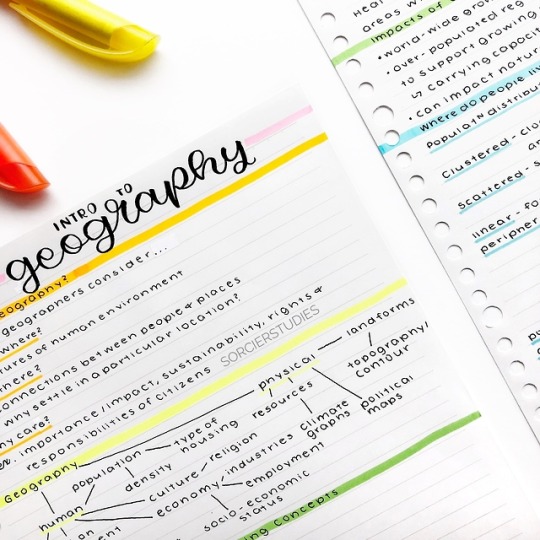 INTRO TO
geography
eography?
geographers consider...
where?
ures of human environment
there?
connections between people & places
why settle in a particular location?
hy care?
ex. importance/impact, sustainability, rights &
responsibilities of citizens
SORCIERSTUDIES
Geography
physical
landforms
topography/
contour
political
maps
climate
graphs
resources
population
type of
housing
density
human
culture/religion
economy/industries
employment
socio-economic
status
on
ment
ing concepts
areas w
impacts of
world-wide grow
over-populated reg
to support growing
↳ carrying capacit
can impact natur
where do people liv
Populatⁿ distribu
Clustered - clo
Scattered - s
linear - fo
peripher